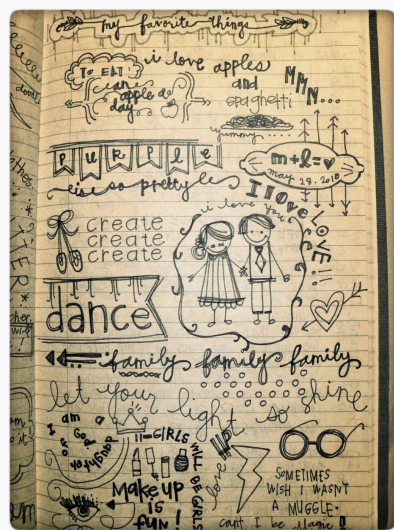 my favorite things
TO EAT
i love apples
and
spaghetti
MMM...
an
apple a
day
yummy....
PURPLE
is so pretty
m + l = ♥
may 29. 2010
I love LOVE!!!
i love you
create
create
create
dance
family family family
let your light so shine
I am a
daughter
of God
11-GIRLS
WILL BE GIRLS
Make up
is
fun!
love
SOMETIMES
WISH I WASN'T
A MUGGLE.
can't I be Magic?